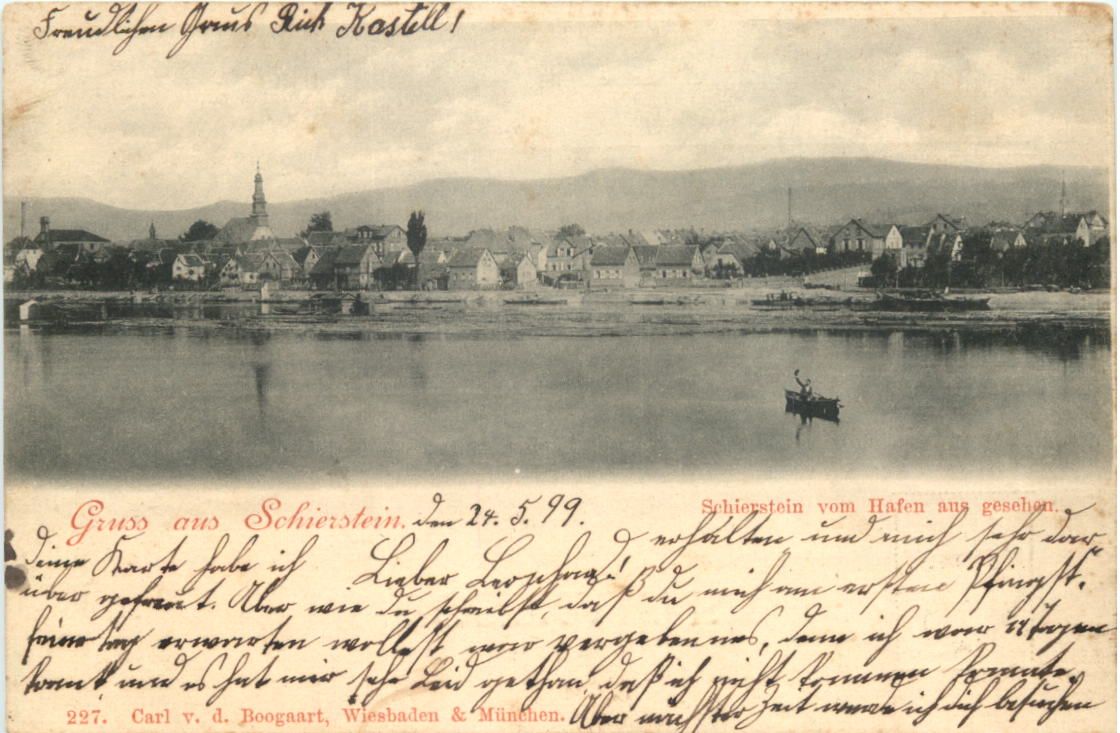 Freudlichen Gruss Rich Kastell!
Gruss aus Schierstein. den 24. 5. 99.
Schierstein vom Hafen aus gesehen.
Lieber
deine Karte habe ich erhalten und mich sehr dar-
über gefreut. Aber wie du schreibst, daß du mich am ersten Pfingst-
feiertag erwarten wollest war vergebennes, denn ich war 14 Tagen
krank und es hat mir sehr Leid gethan, daß ich nicht kommen konnte.
Aber nächster Zeit werde ich dich besuchen
227. Carl v. d. Boogaart, Wiesbaden & München.